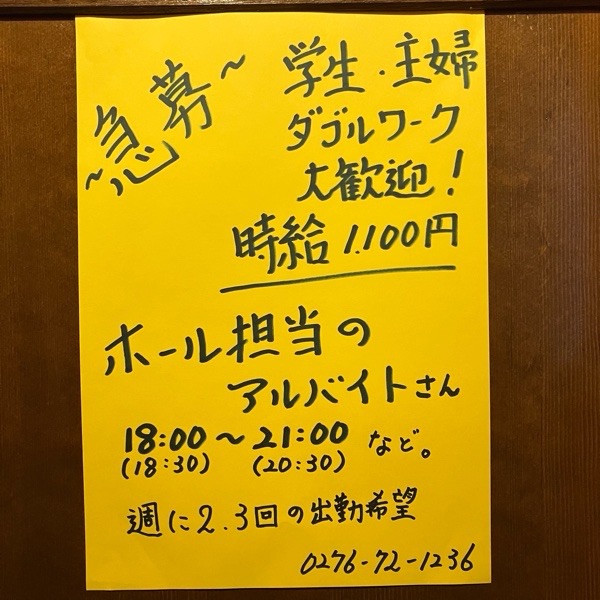 ~急募~
学生・主婦
ダブルワーク
大歓迎!
時給 1.100円
ホール担当の
アルバイトさん
18:00~21:00 など。
(18:30) (20:30)
週に2.3回の出勤希望
0276-72-1236